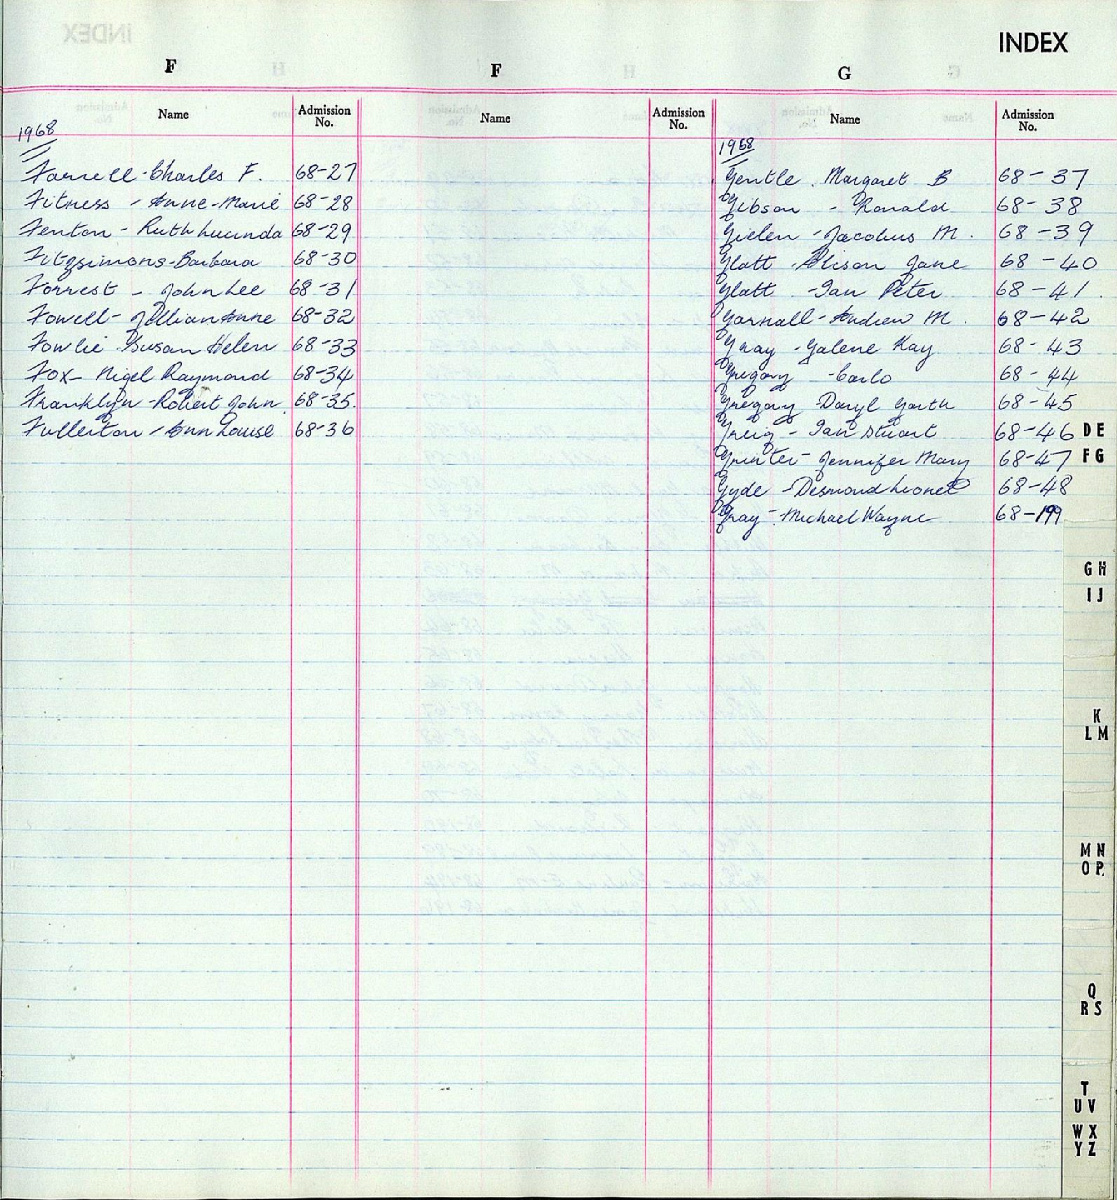 INDEX
F
Name Admission No.
1968
Farrell - Charles F. 68-27
Fitness - Anne-Marie 68-28
Fenton - Ruth Lucinda 68-29
Fitzsimons - Barbara 68-30
Forrest - John Lee 68-31
Fowell - Jillian Anne 68-32
Fowlie - Susan Helen 68-33
Fox - Nigel Raymond 68-34
Franklyn - Robert John 68-35.
Fullerton - Ann Louise 68-36
F
Name Admission No.
G
Name Admission No.
1968
Gentle - Margaret B 68-37
Gibson - Ronald 68-38
Gielen - Jacobus M. 68-39
Glatt - Alison Jane 68-40
Glatt - Ian Peter 68-41
Garnall - Andrew M. 68-42
Gray - Galene Kay 68-43
Gregory - Carlo 68-44
Gregory Daryl Garth 68-45
Greig - Ian Stuart 68-46
Grinter - Jennifer Mary 68-47
Gyde - Desmond Lionel 68-48
Gray - Michael Wayne 68-199
DE
FG
GH
IJ
K
LM
MN
OP.
Q
RS
T
UV
WX
YZ